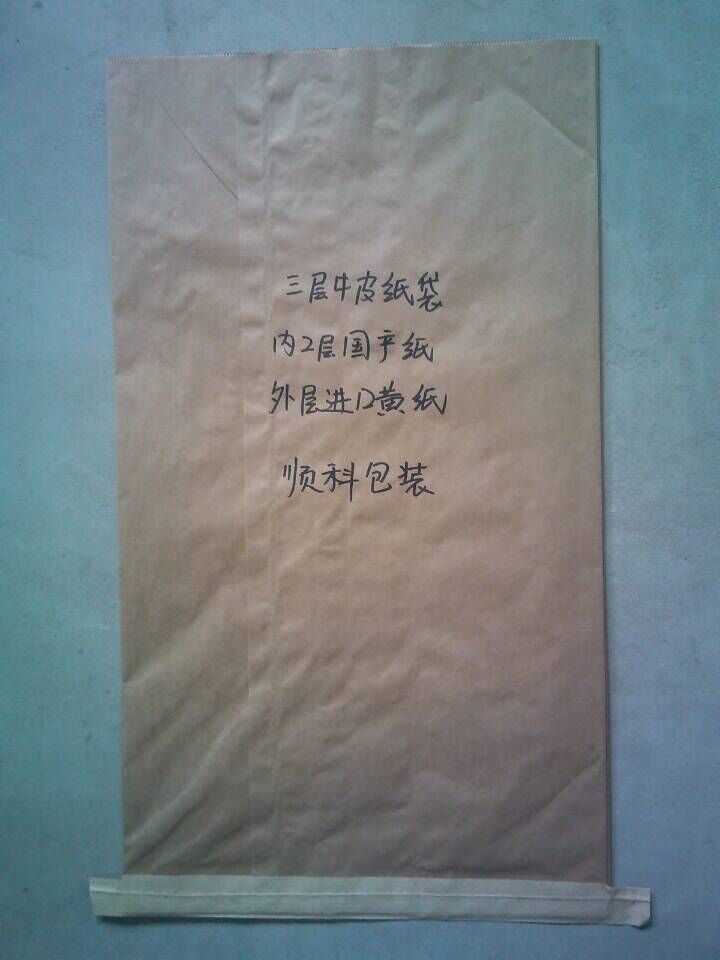 三层牛皮纸袋
内2层国产纸
外层进口黄纸
顺科包装